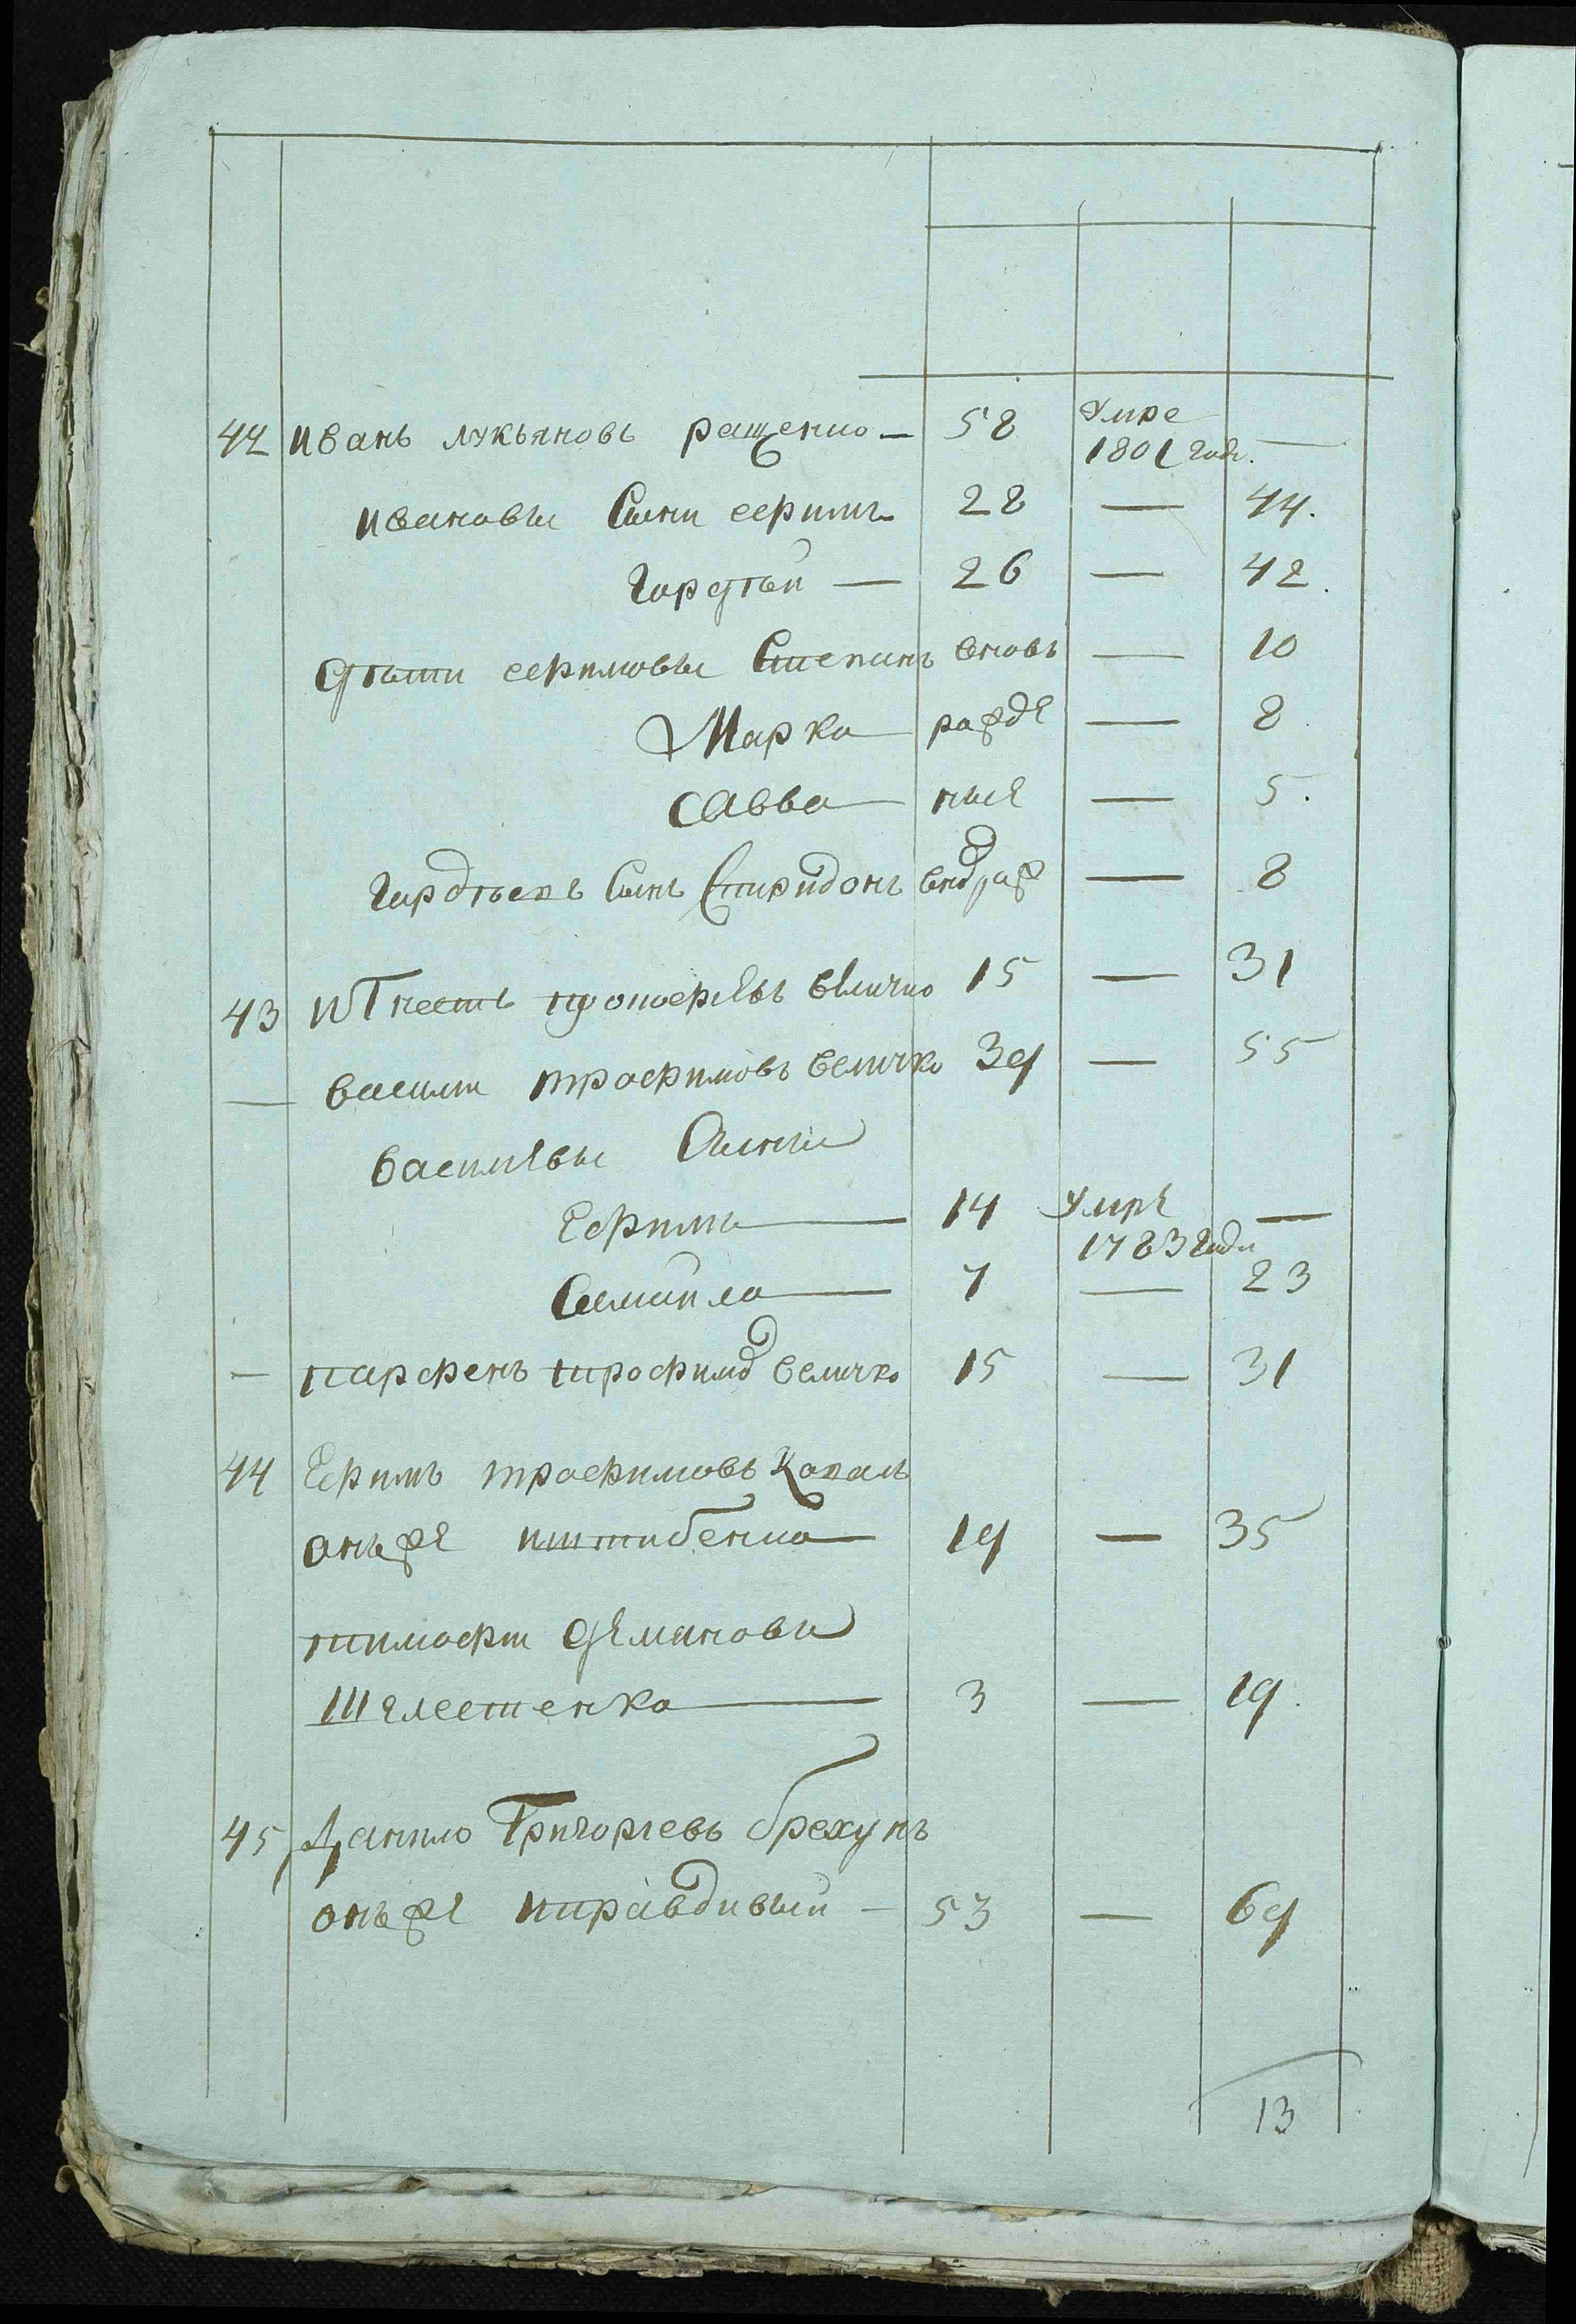 42 иванъ лукьяновъ ращенко — 58 Умре
1801 году. —
ивановы Сыни ефимъ 28 — 44.
Гордѣй — 26 — 42.
дѣти ефимовы Степанъ вновь — 10
Марко рожде — 8
Савва ные — 5.
Гордѣевъ Сынъ Спиридонъ внов рож — 8
43 Игнатъ прокофьевъ величко 15 — 31
— василии трофимовъ величко 39 — 55
василевы Сыны
Ефимъ 14 Умре —
1783 году
Самоило 7 — 23
— парфенъ трофимов величко 15 — 31
44 Ефимъ трофимовъ Коваль
онъже 19 — 35
тимофеи деманова
Шелестенко 3 — 19.
45 Данило Григорьевъ брехунъ
онъже правдивый — 53 — 69
13